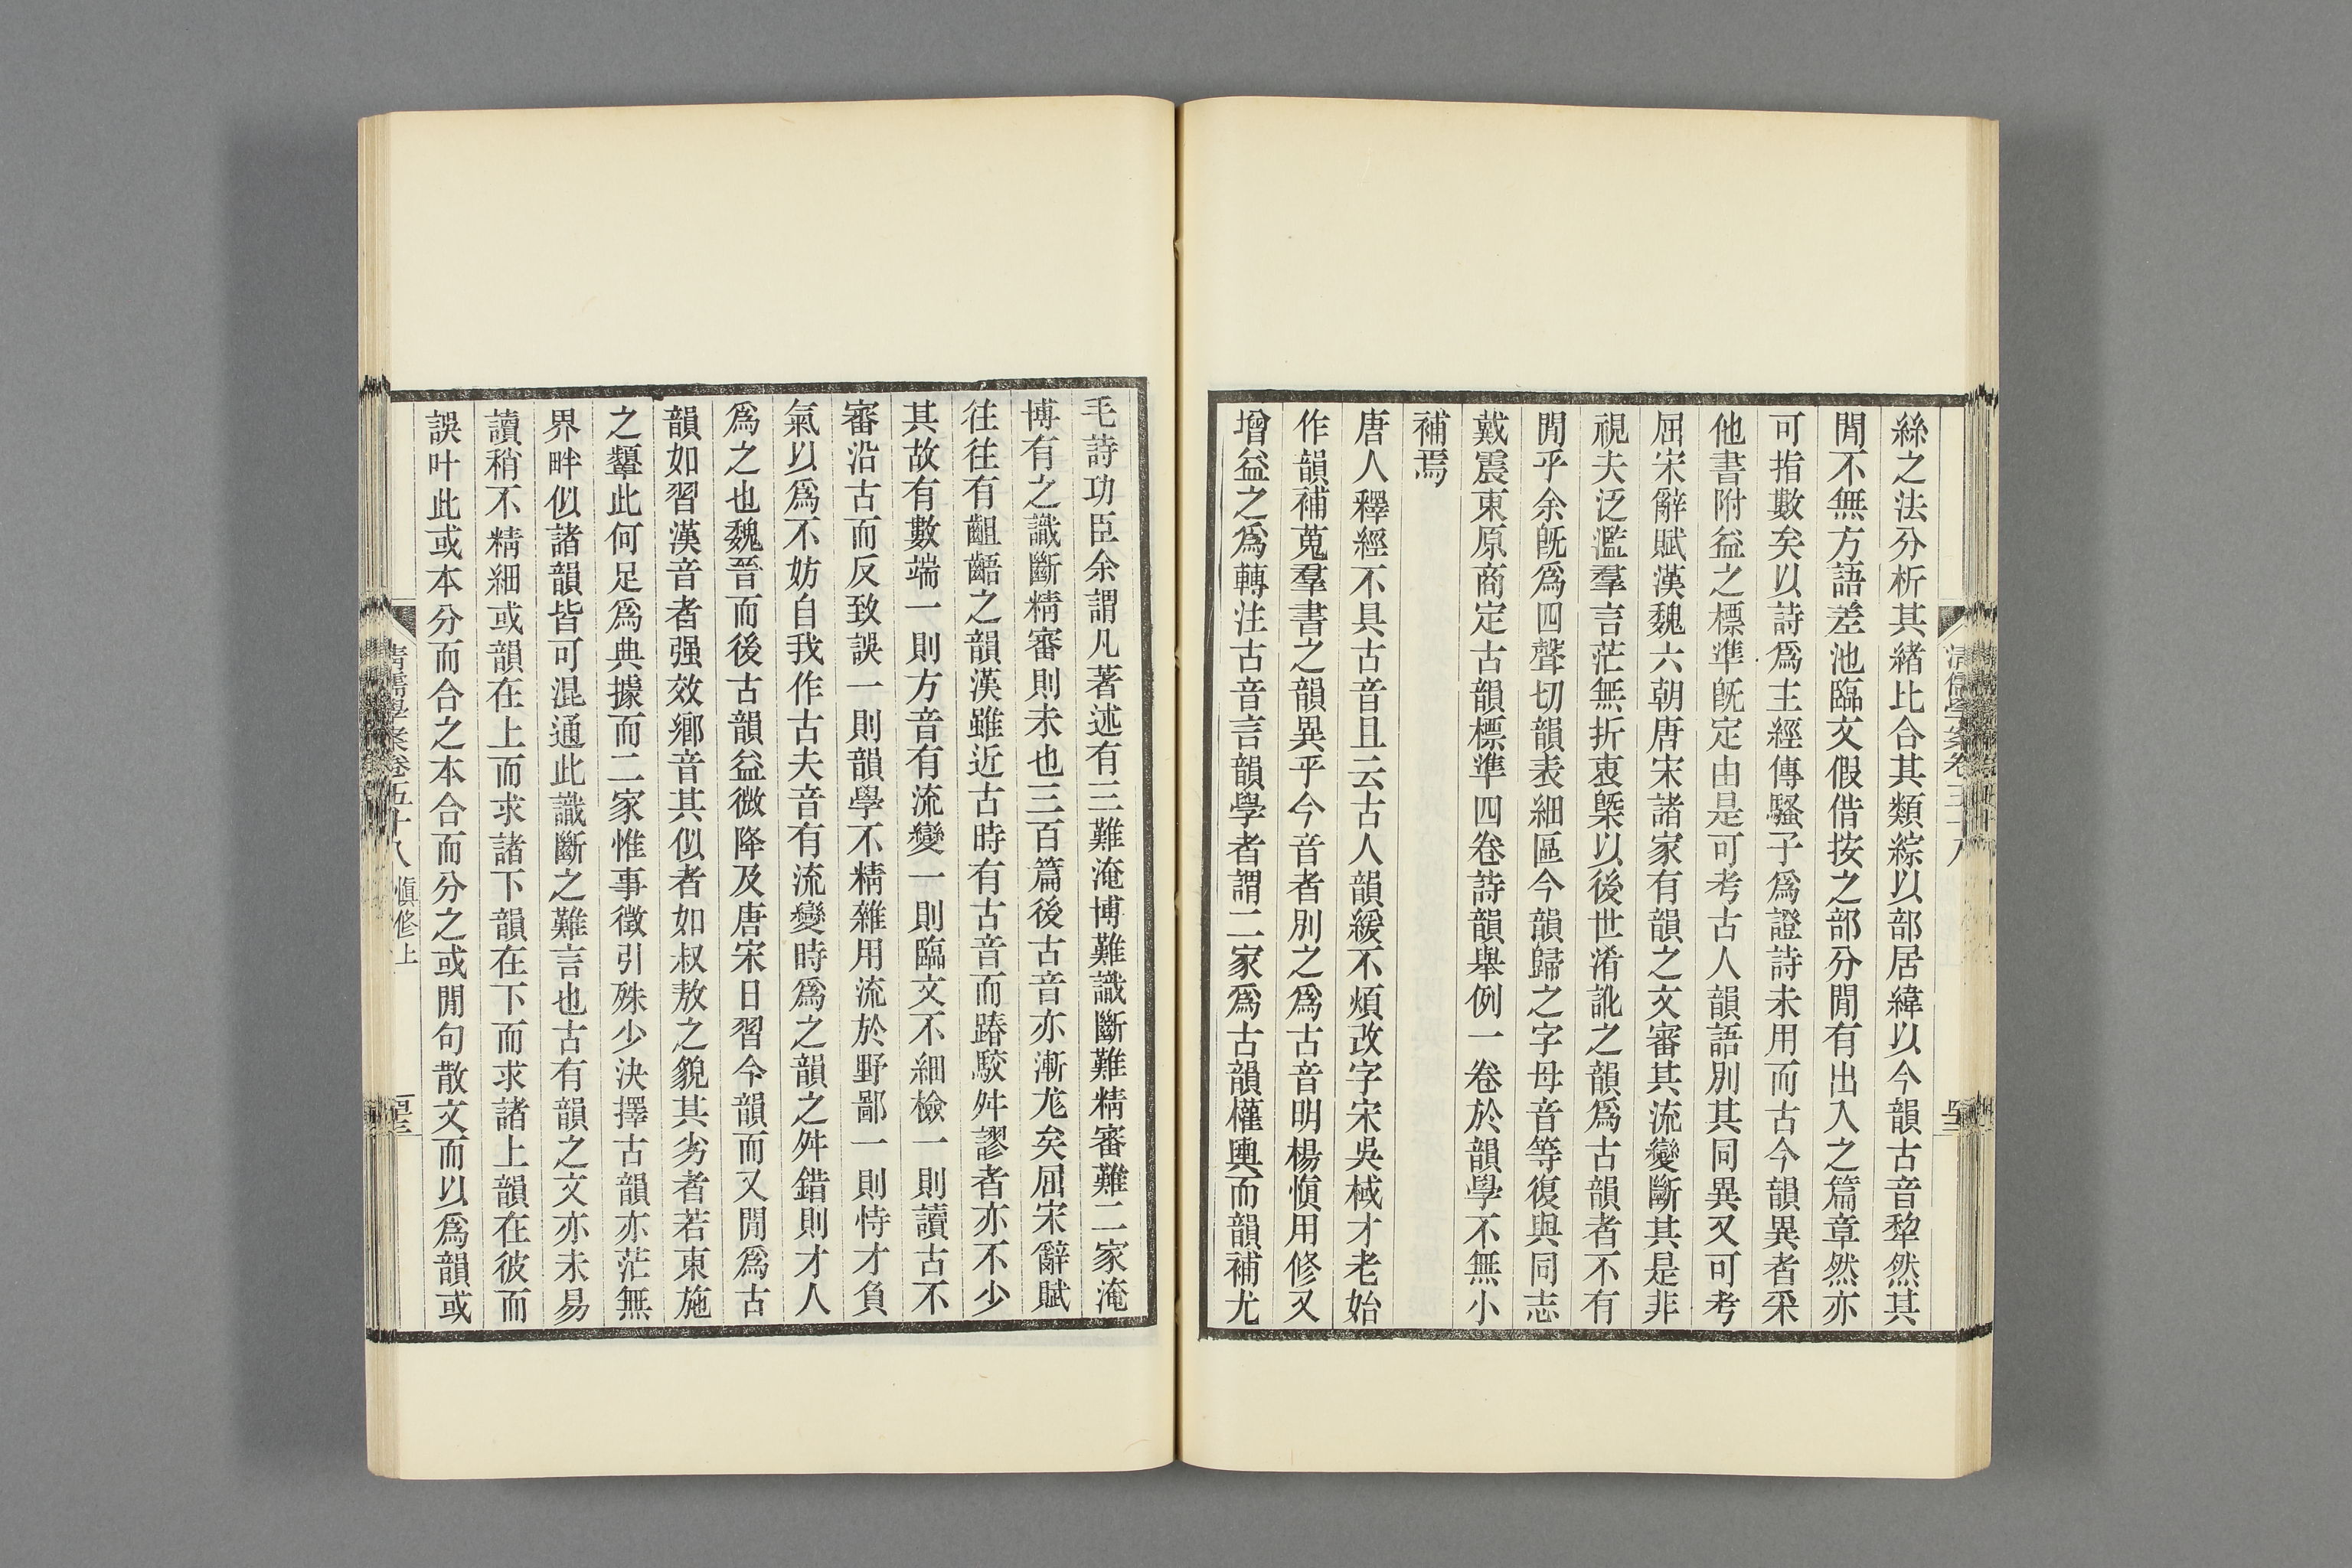 絲之法分析其緒比合其類綜以部居緯以今韻古音犂然其
閒不無方語差池臨文假借按之部分閒有出入之篇章然亦
可指數矣以詩爲主經傳騷子爲證詩未用而古今韻異者采
他書附益之標準旣定由是可考古人韻語別其同異又可考
屈宋辭賦漢魏六朝唐宋諸家有韻之文審其流變斷其是非
視夫泛濫羣言茫無折衷槩以後世淆訛之韻爲古韻者不有
閒乎余旣爲四聲切韻表細區今韻歸之字母音等復與同志
戴震東原商定古韻標準四卷詩韻舉例一卷於韻學不無小
補焉
唐人釋經不具古音且云古人韻緩不煩改字宋吳棫才老始
作韻補蒐羣書之韻異乎今音者別之爲古音明楊愼用修又
增益之爲轉注古音言韻學者謂二家爲古韻權輿而韻補尤
毛詩功臣余謂凡著述有三難淹博難識斷難精審難二家淹
博有之識斷精審則未也三百篇後古音亦漸尨矣屈宋辭賦
往往有齟齬之韻漢雖近古時有古音而踳駮舛謬者亦不少
其故有數端一則方音有流變一則臨文不細檢一則讀古不
審沿古而反致誤一則韻學不精雜用流於野鄙一則恃才負
氣以爲不妨自我作古夫音有流變時爲之韻之舛錯則才人
爲之也魏晉而後古韻益微降及唐宋日習今韻而又閒爲古
韻如習漢音者强效鄕音其似者如叔敖之貌其劣者若東施
之顰此何足爲典據而二家惟事徵引殊少決擇古韻亦茫無
界畔似諸韻皆可混通此識斷之難言也古有韻之文亦未易
讀稍不精細或韻在上而求諸下韻在下而求諸上韻在彼而
誤叶此或本分而合之本合而分之或閒句散文而以爲韻或
清儒學案卷五十八 愼修上